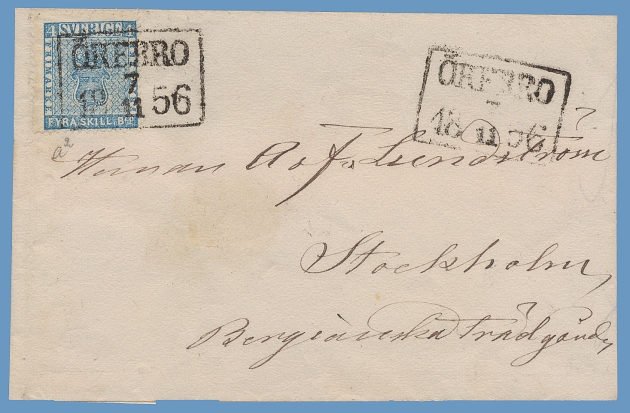 4 SVERIGE 4
FYRA SKILL. Bco
ÖREBRO
7
18 11 56
ÖREBRO
7
18 11 56
a2
Lundström
Stockholm,
Bergianska Trädgården